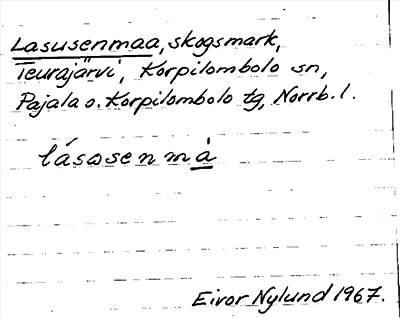 Lasusenmaa, skogsmark,
Teurajärvi, Korpilombolo sn,
Pajala o. Korpilombolo tg, Norrb. l.
lásusenmá
Eivor Nylund 1967.